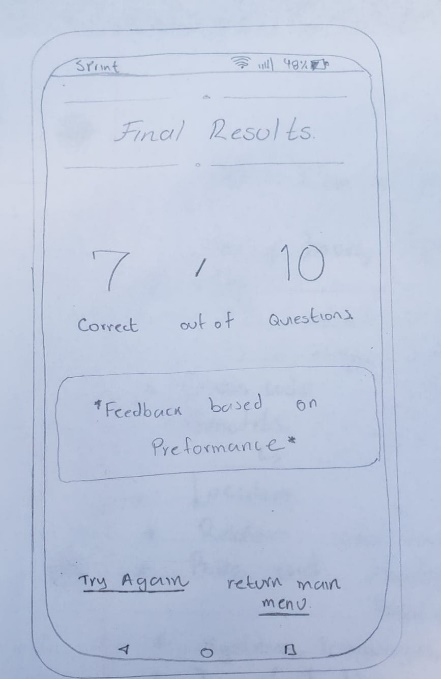 Sprint 48%
Final Results.
7 / 10
Correct out of Questions
*Feedback based on
Preformance*
Try Again return main
menu.